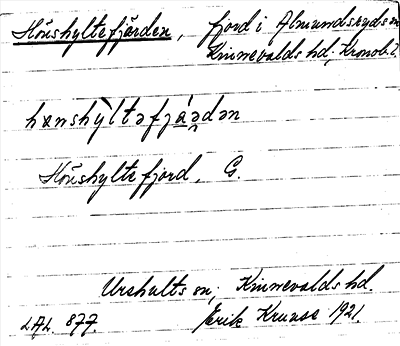 Hönshyltefjärden, fjord i Almundsryds sn
Kinnevalds hd, Kronob. l.
hønshỳltəfjǽədən
Hönshyltefjord, G.
Urshults sn, Kinnevalds hd.
LAL. 877. Erik Kruuse 1921.